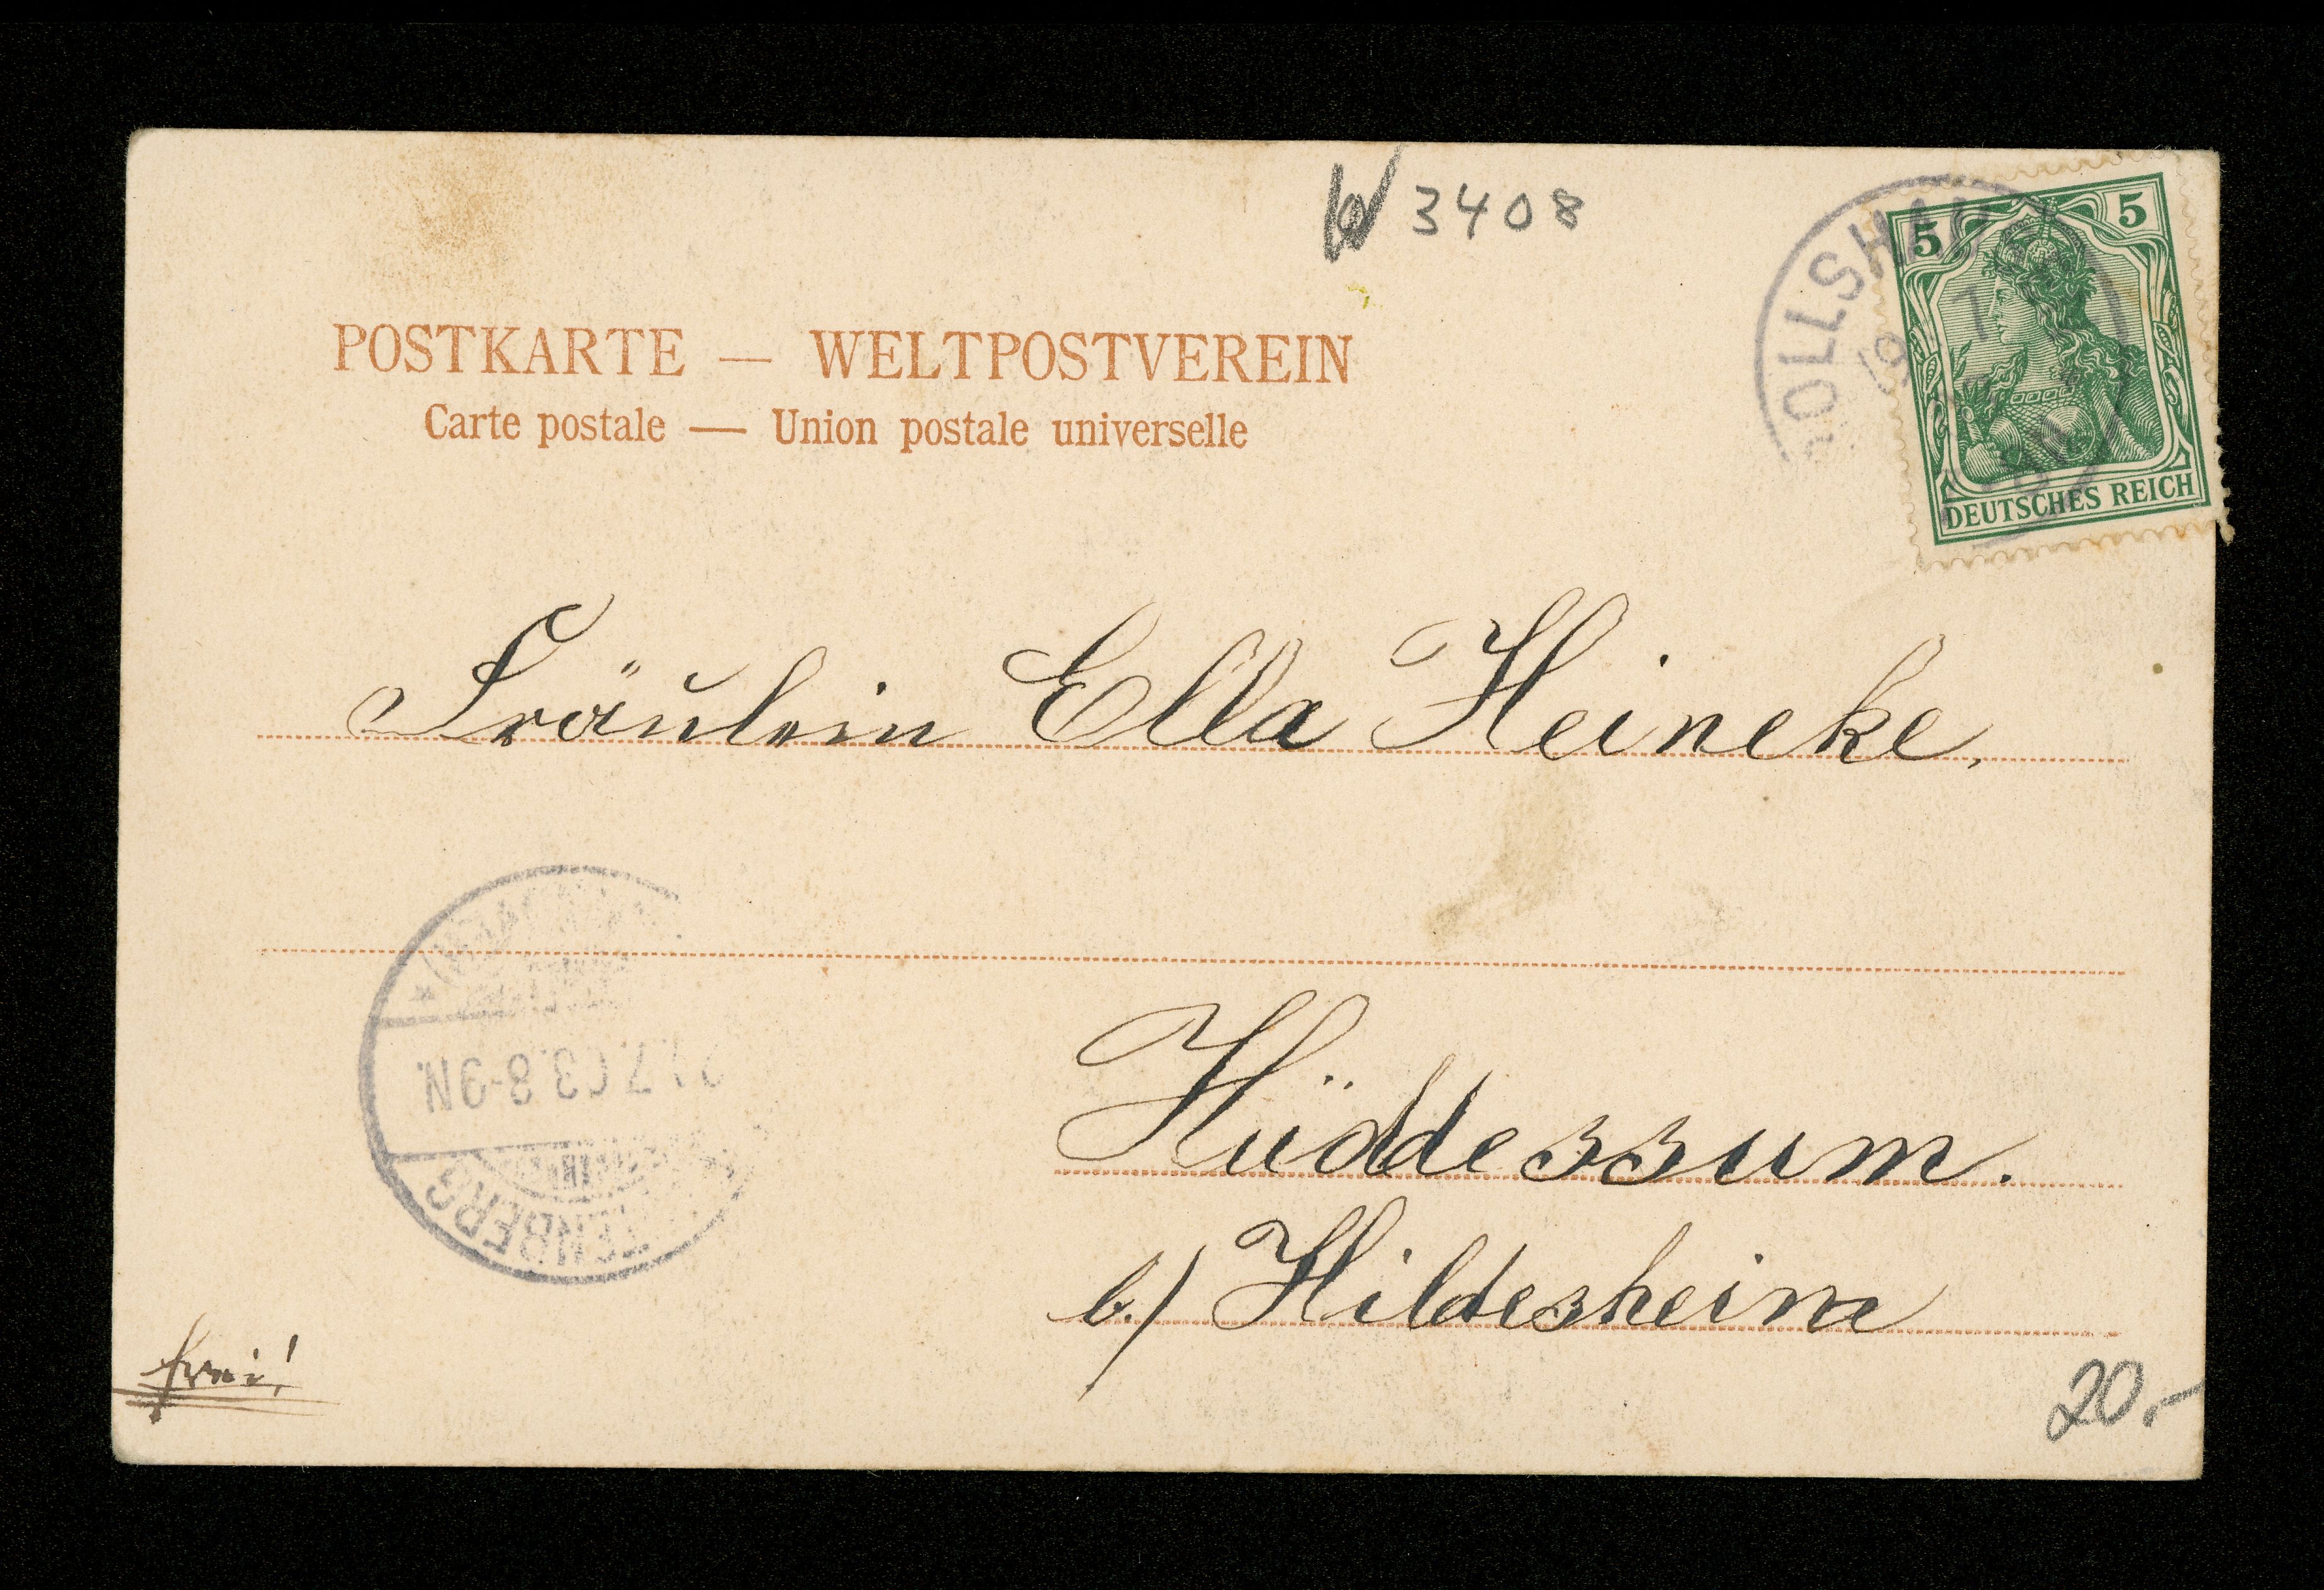 W 3408
POSTKARTE — WELTPOSTVEREIN
Carte postale — Union postale universelle
5 5
DEUTSCHES REICH
OLLSHAU
Fräulein Ella Heineke,
7.03.8-9N.
TENBERG
Hüddessum.
b./ Hildesheim
frei!
20,-